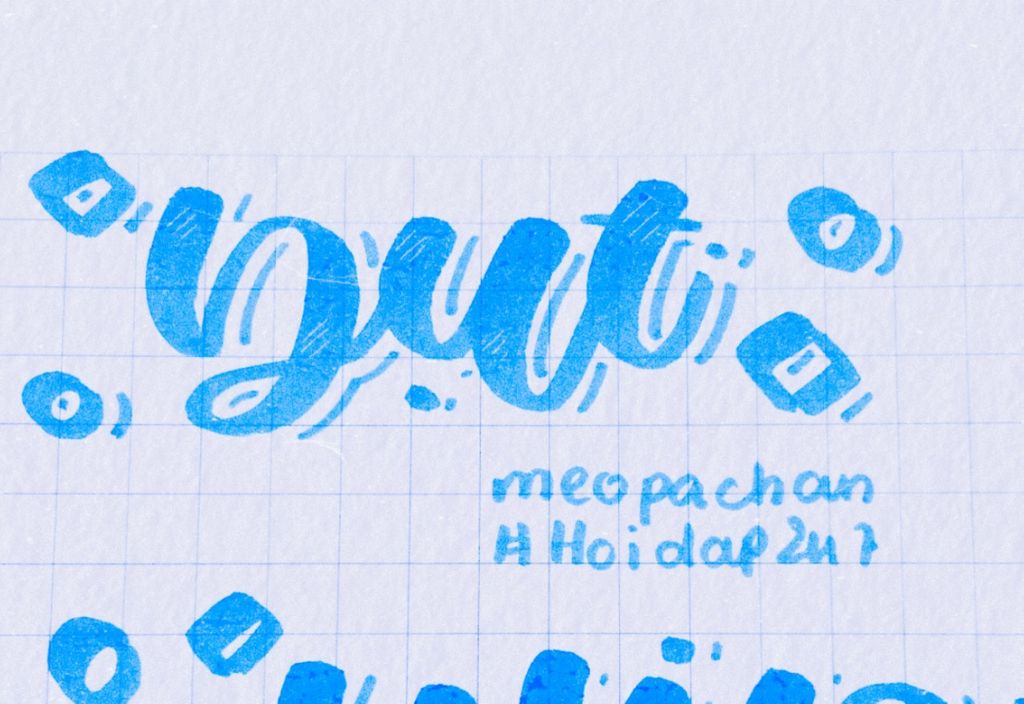 but
meopachan
#Hoidap247